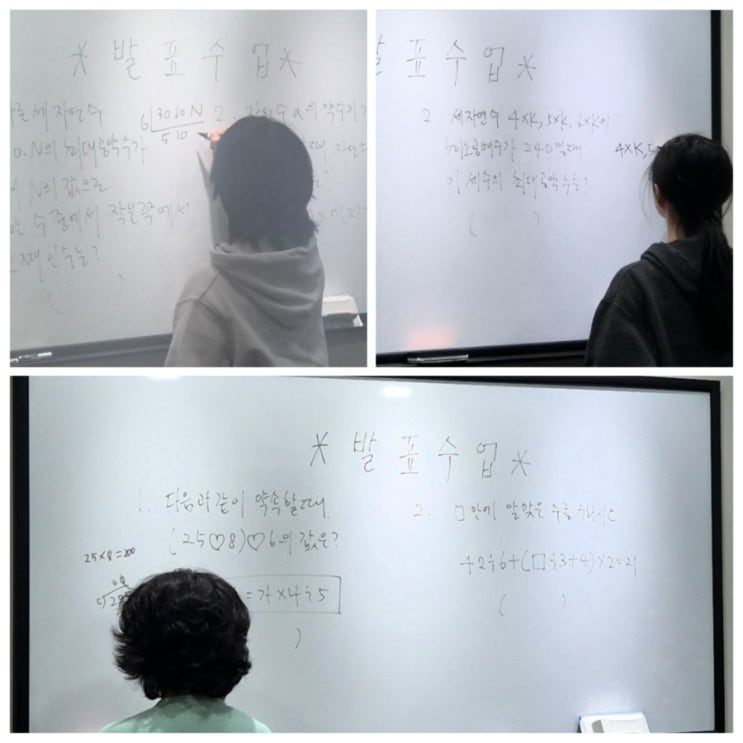 * 발 표 수 업 *
세 자연수
6 30 60 N
5 10
N의 최대공약수가
N의 값으로
수 중에서 작은쪽에서
째인 수는?
( )
2. 자연수 a의 약수의
발 표 수 업 *
2. 세자연수 4×K, 5×K, 6×K의
최소공배수가 240일때
이 세수의 최대공약수는?
( )
4×K, 5×
* 발 표 수 업 *
1. 다음과 같이 약속할때
(25♡8)♡6의 값은?
25×8=200
= 가×나÷5
)
2. □안에 알맞은 수를 구하시오
42÷6+(□÷3+4)×2=21
( )